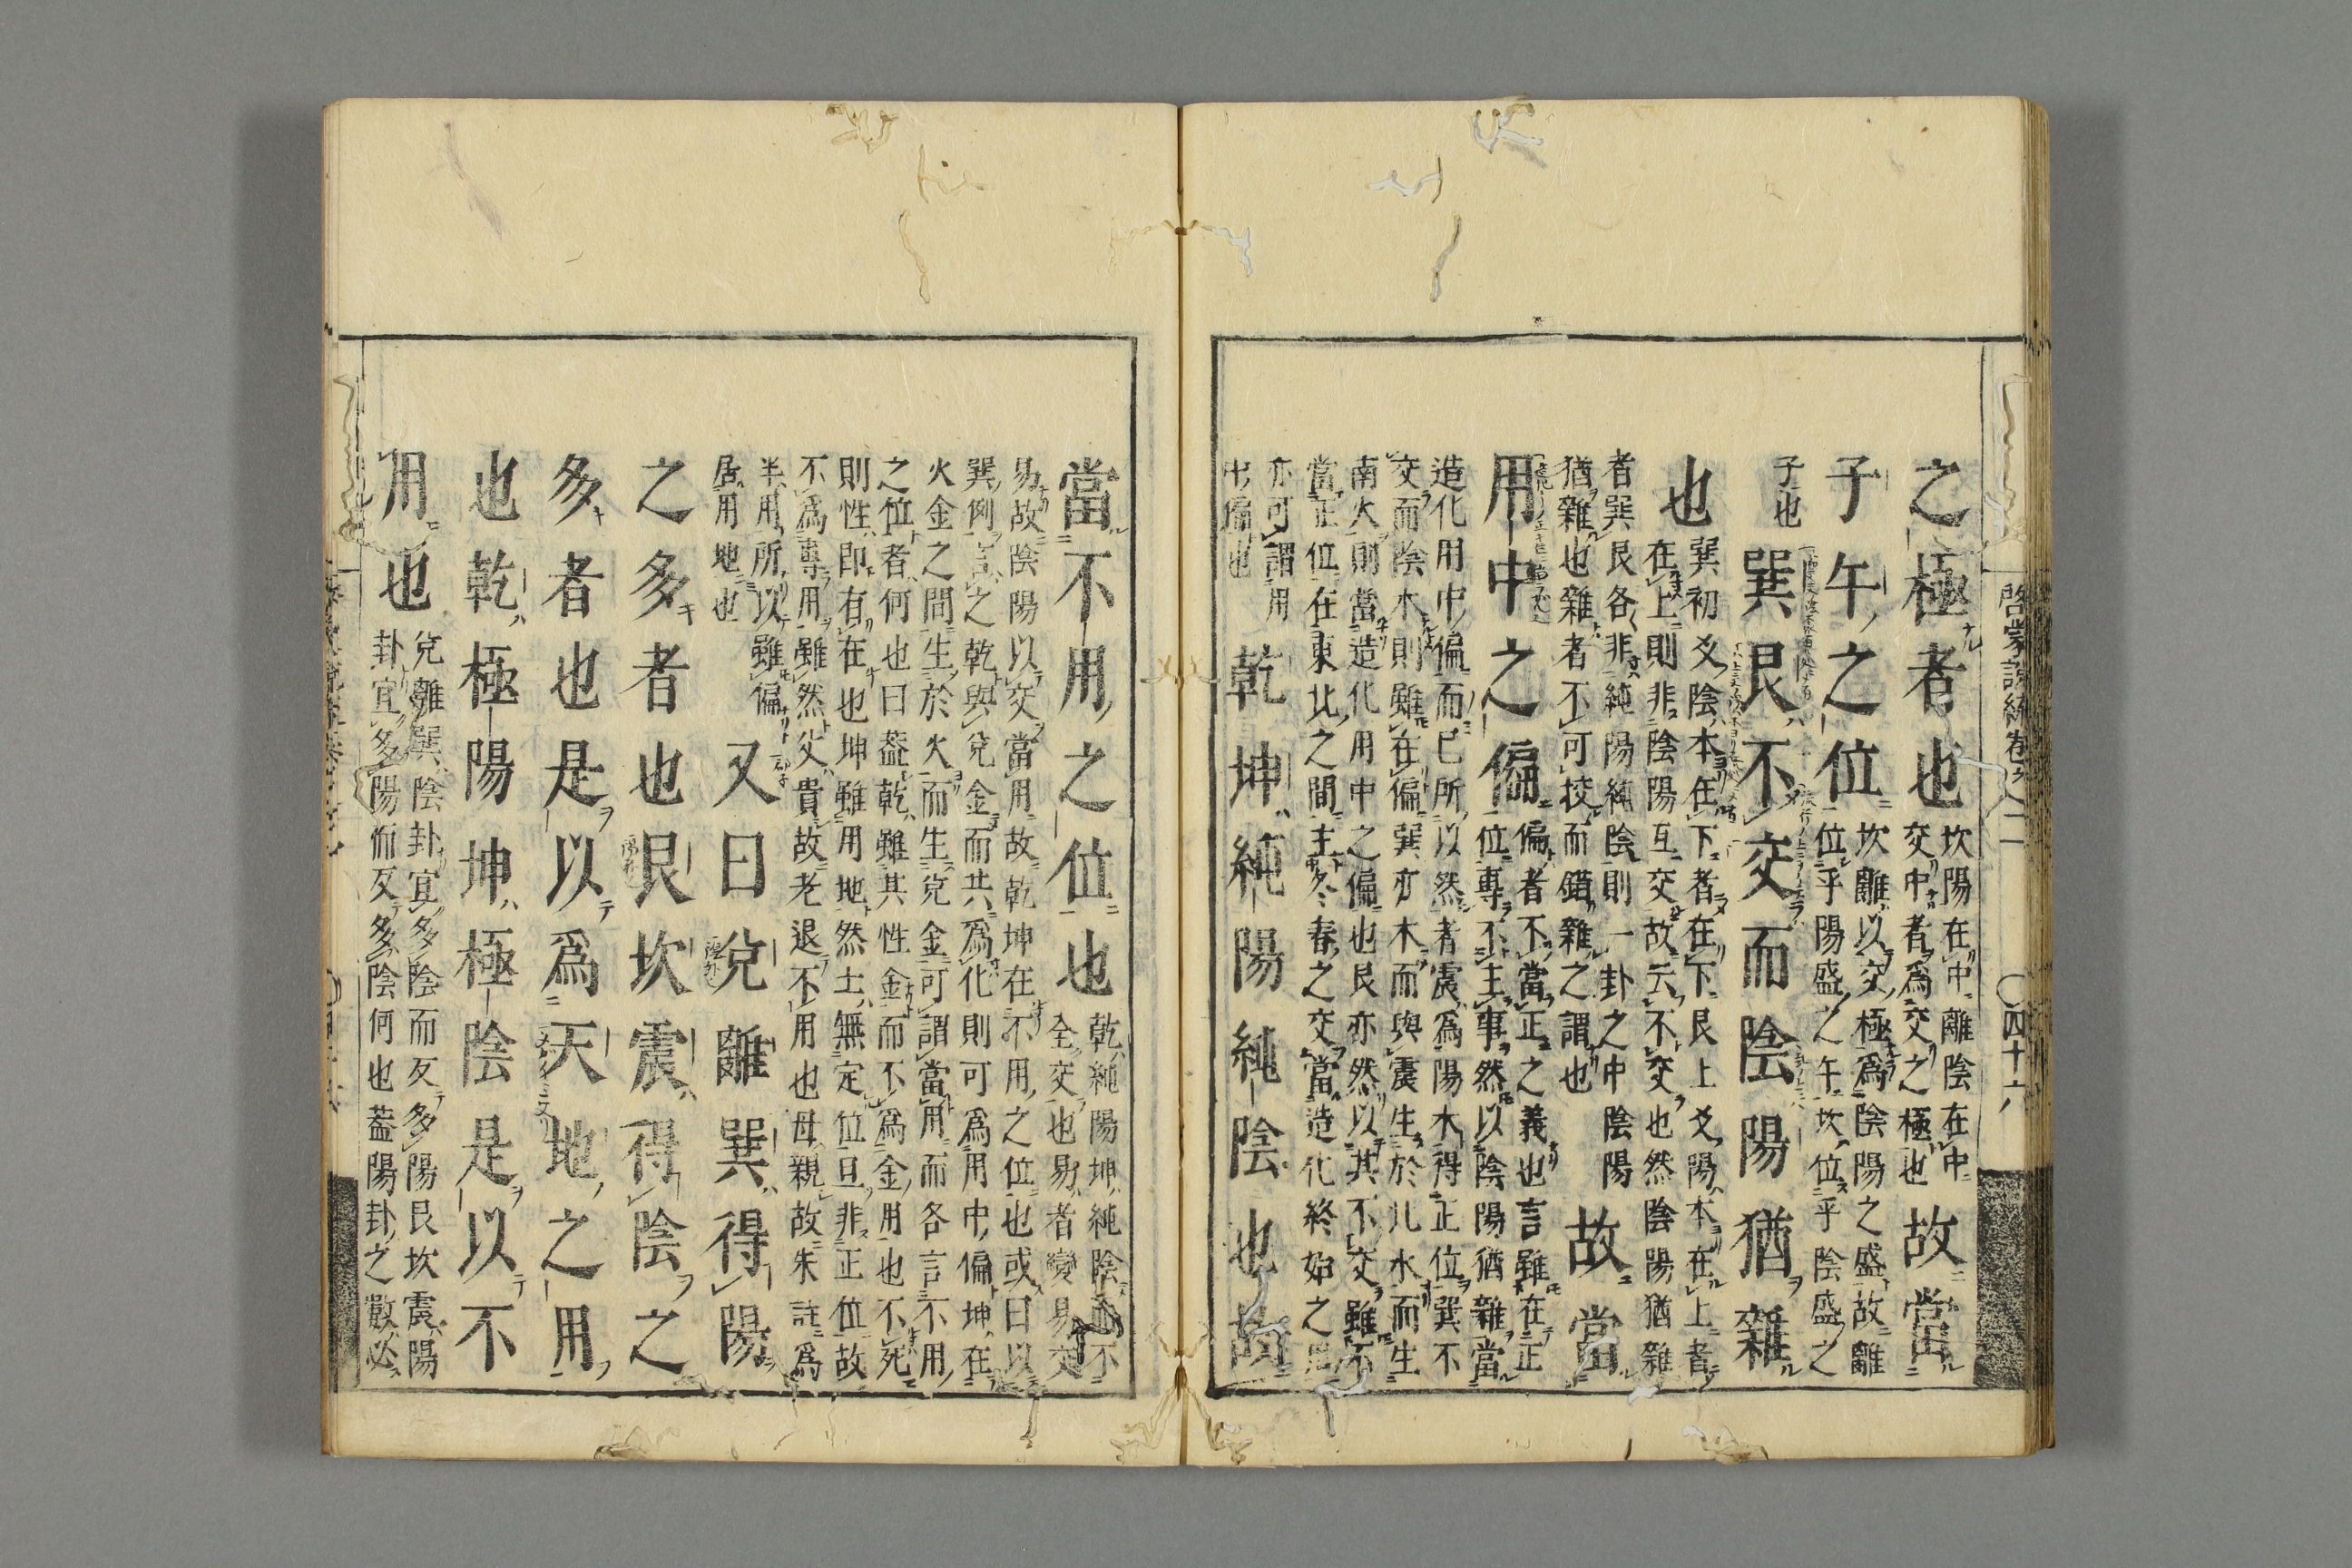 啓蒙説統卷之二
四十六
之極者也 坎陽在中離陰在中 故當
交中者爲交之極也
子午之位 坎離以交極爲陰陽之盛故離
位乎陽盛之午坎位乎陰盛之
子也 巽艮不交而陰陽猶雜
也 巽初爻陰本在下者在下艮上爻陽本在上者
在上則非陰陽互交故云不交也然陰陽猶雜
者巽艮各非純陽純陰則一卦之中陰陽
猶雜也雜者不可挍而錯雜之謂也 故當
用中之偏 偏者不當正之義也言雖在正
位專不主事然以陰陽猶雜當
造化用中偏而已所以然者震爲陽木得正位巽不
交而陰木則雖在偏巽亦木而與震生於北水而生
南火則當造化用中之偏也艮亦然以其不交雖不
當正位在東北之間主冬春之交當造化終始之
亦可謂用
中偏也 乾坤純陽純陰也故
當不用之位也 乾純陽坤純陰而不
全交也易者變易交
易故陰陽以交當用故乾坤在不用之位也或曰以
巽例言之乾與兌金而共爲化則可爲用中偏坤在
火金之間生於火而生兌金可謂當用而各言不用
之位者何也曰蓋乾雖其性金而不爲金用也不死
則性即有在也坤雖用地然土無定位且非正位故
不爲專用雖然父貴故老退不用也母親故朱註爲
半用所以雖偏
居用地也 又曰兌離巽得陽
之多者也艮坎震得陰之
多者也是以爲天地之用
也乾極陽坤極陰是以不
用也 兌離巽陰卦宜多陰而反多陽艮坎震陽
卦宜多陽而反多陰何也蓋陽卦之數必